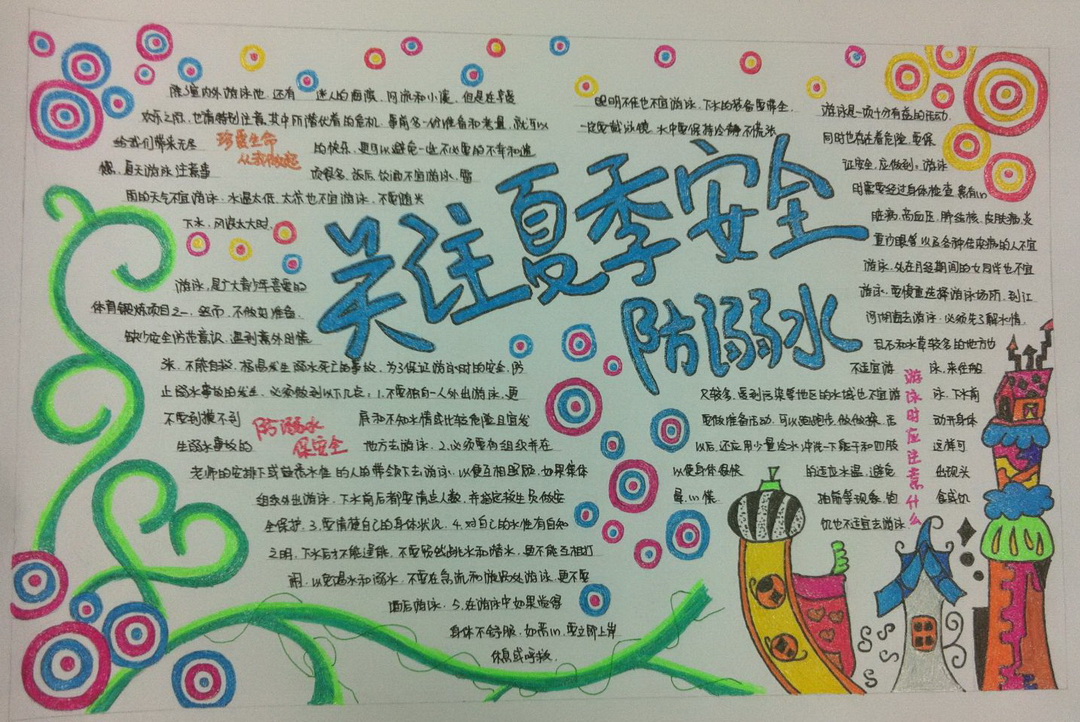 关注夏季安全
防溺水
除了室内外游泳池，还有迷人的海滨、河流和小溪，但是在享受
欢乐之际，也需特别注意其中所潜伏着的危机，事前多一份准备和考量，就可以
给我们带来无尽的快乐，更可以避免一些不必要的不幸和遗
憾，夏天游泳注意事项很多，饭后饮酒不宜游泳，雷
雨的天气不宜游泳，水温太低、太凉也不宜游泳，不要随
下水，风浪太大时，
珍爱生命
从我做起
游泳，是广大青少年喜爱的
体育锻炼项目之一，然而，不做好准备、
缺少安全防范意识，遇到意外时慌
张、不能自救，极易发生溺水死亡的事故，为了保证游泳时的安全，防
止溺水事故的发生，必须做到以下几点：1.不要独自一人外出游泳，更
不要到摸不到底和不知水情或比较危险且宜发
生溺水事故的地方去游泳，2.必须要有组织并在
老师的安排下或熟悉水性的人的带领下去游泳，以便互相照顾，如果集体
组织外出游泳，下水前后都要清点人数，并指定救生员做安
全保护，3.要清楚自己的身体状况，4.对自己的水性有自知
之明，下水后不能逞能，不要贸然跳水和潜水，更不能互相打
闹，以免喝水和溺水，不要在急流和漩涡处游泳，更不要
酒后游泳，5.在游泳中如果觉得
身体不舒服，如 ，要立即上岸
休息或呼救.
防溺水
保安全
眼明不佳也不宜游泳，下水的装备要带全，
一定要戴泳镜，水中要保持冷静不慌张
游泳是一项十分有益的活动，
同时也存在着危险，要保
证安全，应做到：游泳
时需要经过身体检查，患有
脏病、高血压、肺结核、皮肤病、炎
重沙眼等以及各种传染病的人不宜
游泳，处在月经期间的女同学也不宜
游泳，要慎重选择游泳场所，到江
河湖海去游泳，必须先了解水情，
且 和水草较多的地方也
不适宜游泳，来往船
只较多、受到污染等地区的水域也不宜游泳，下水前
要做准备活动，可以跑跑步、做做操、活动开身体
以后，还应用少量冷水冲洗一下躯干和四肢，这样可
以使身体很快的适应水温，避免出现头
晕、 慌、抽筋等现象，饱食或饥
饥也不适宜去游泳
游泳时应注意什么